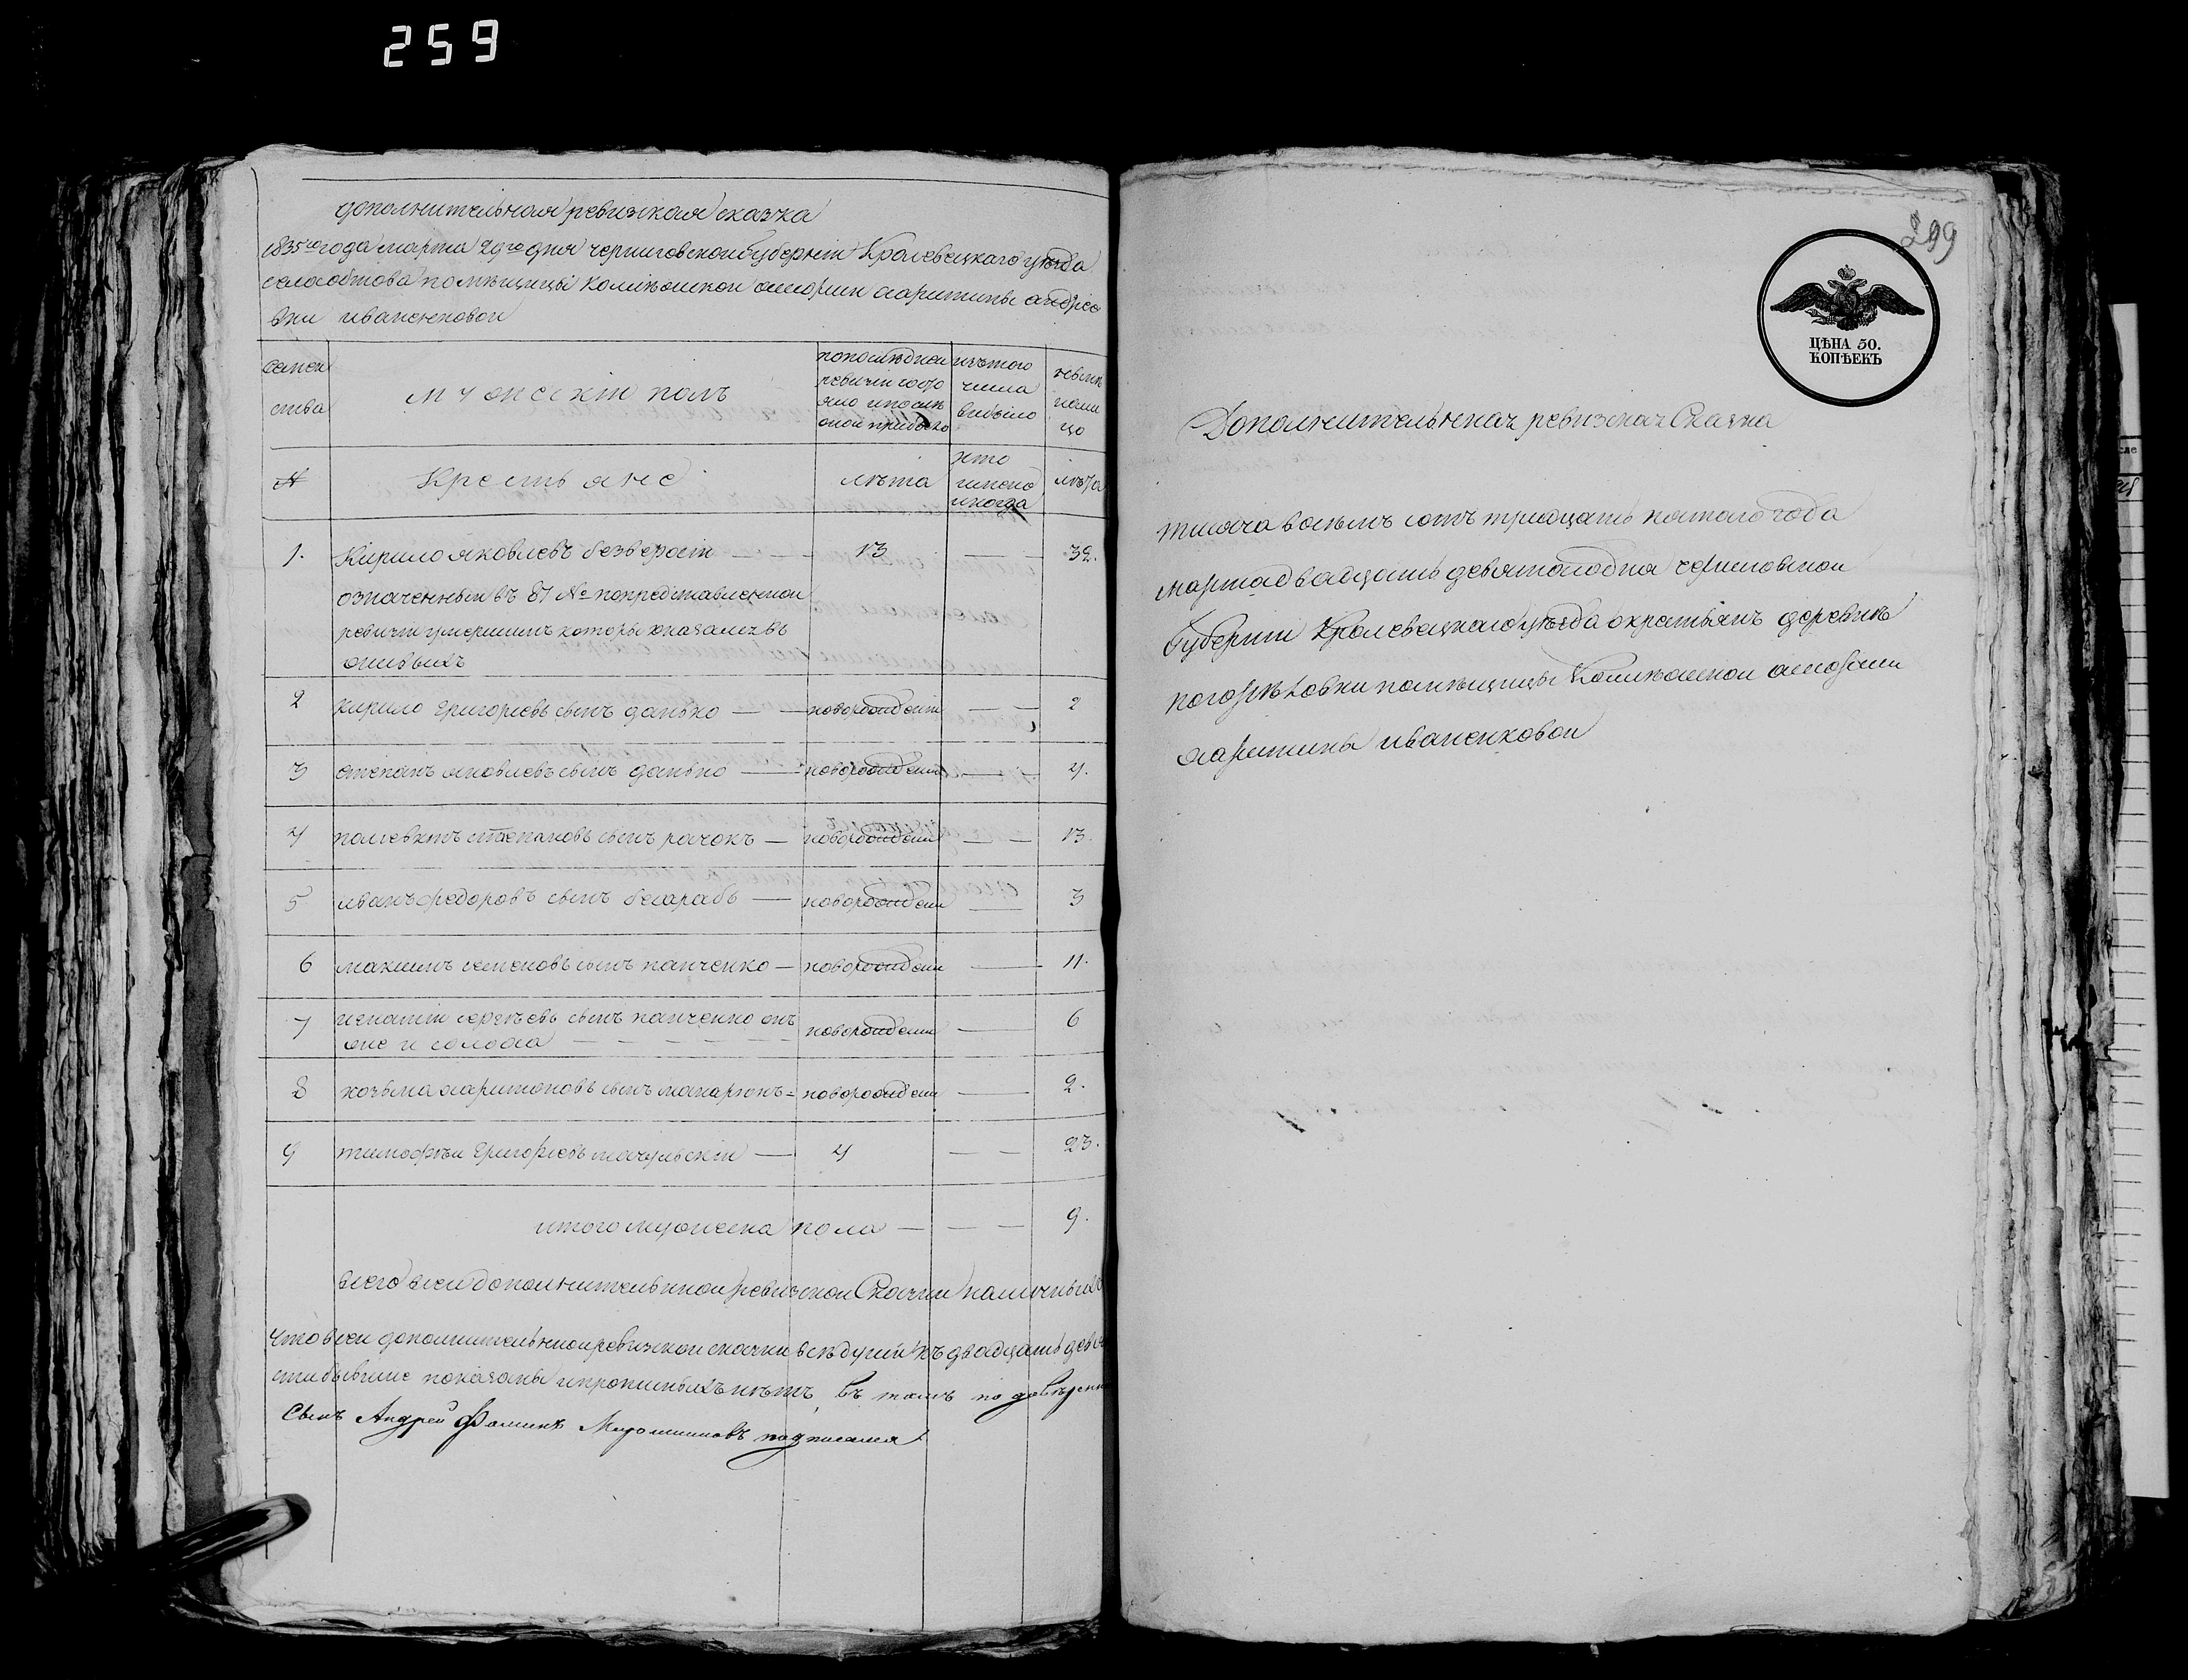 259
дополнительная ревизская сказка
1835го года марта 29го дня черниговской Губерніи Кролевецкаго уѣзда
села обтова помѣщицы Коллѣжской харитины андрее
вни иваненковой
семей
ства
мужескій полъ
по последней
ревизіи состо
яло и после
оной прибыло
изътого
числа
выбыло
ныне
на ли
цо
№
Крестьяне
лѣта
кто
имено
и когда
лѣта
1. Кирило яковлевъ безверхій — — 13 — — 32.
означенный въ 87 № по представленной
ревизіи умершимъ которы оказался въ
живыхъ
2 кирило Григоріевъ сынъ данько — — новорожденй — — 2
3 степанъ яковлевъ сынъ данько — новорожденй — — 4.
4 степановъ сынъ рачокъ — новорожденй — — 13.
5 иванъ федоровъ сынъ бесарабъ — новорожденй — 3
6 максимъ семеновъ сынъ панченко — новорожденй — 11.
7 игнатій сергѣевъ сынъ панченко онъ новорожденй — 6
же и солоха — — — — —
8 козьма харитоновъ сынъ новорожденй — 2.
9 тимофѣй Григоріевъ — 4 — — 23.
итого мужеска пола — — — 9.
всего всей дополнительнной ревизской Скаски наличныхъ
что всей дополнительнной ревизской скаски двадцать дев
бывшие показаны и прописныхъ нѣтъ, въ томъ по довѣренн
Сынъ Андрей Фоминъ Мирошниковъ подписался
299
ЦѢНА 50.
КОПѢЕКЪ
Дополнительнная ревизская Сказка
тисяча восемъ сотъ тридцать пятого года
марта двадцать девятого дня черниговской
Губерніи Кролевецкаго уѣзда о крестьянъ деревнѣ
погорѣловки помѣщицы Коллѣжской
харитины иваненковой